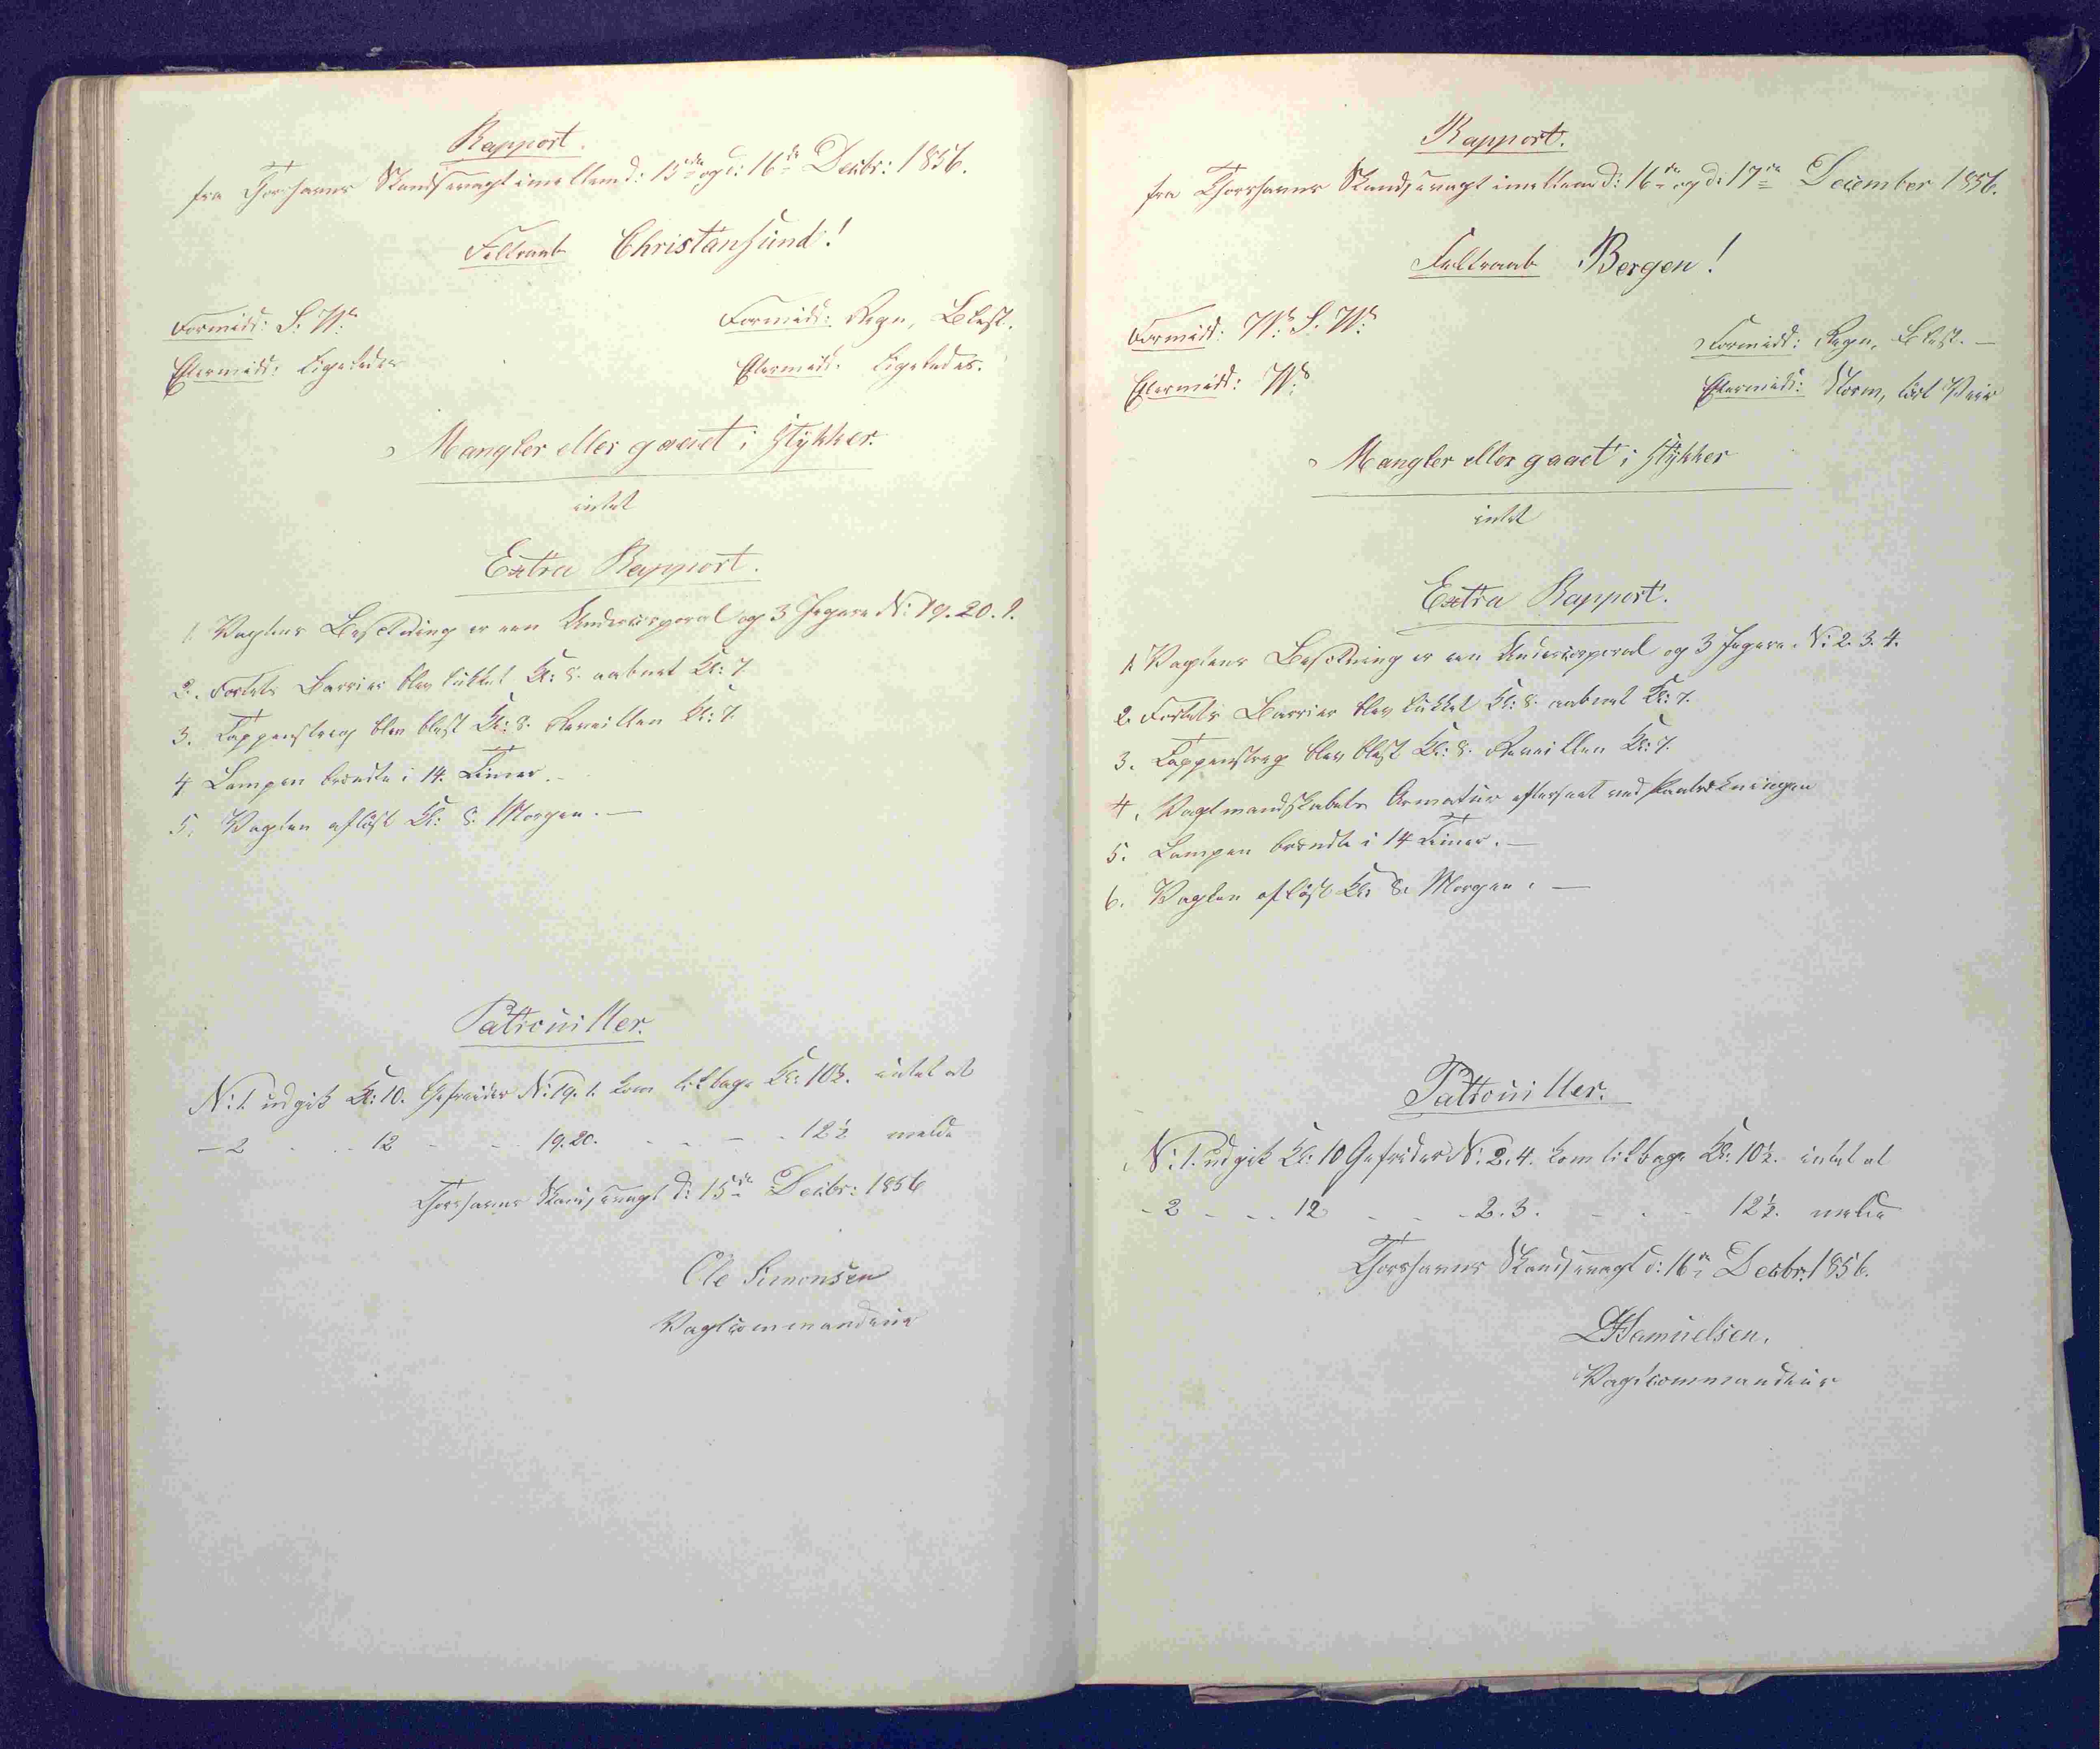 Rapport.
fra Thorshavns Skandsevagt imellem d: 15de og d: 16de Decbr: 1856.
Feltraab Christiansund!
Formidd: S. W.
Formidd: Regn, Blæst.
Eftermidd: Ligeledes
Eftermidd: Ligeledes.
Mangler eller gaaet i Stykker.
intet
Extra Rapport.
1. Vagtens Besætning er een Undercorporal og 3 Jegere N: 19. 20. 1.
2. Fortets Barrier blev lukket Kl: 8. aabnet Kl: 7.
3. Tappenstreg blev blæst Kl: 8. Reveillen Kl: 7.
4 Lampen brændte i 14. Timer.
5. Vagten afløst Kl: 8. Morgen. —
Patrouiller.
N: 1. udgik Kl: 10. Gefreider N: 19. 1. kom tilbage Kl: 10½. intet at
— 2 - - 12 - - 19. 20. - - - - 12½ melde
Thorshavns Skandsevagt d: 15de Decbr: 1856
Ole Simonsen
Vagtcommandeur
Rapport.
fra Thorshavns Skandsevagt imellem d: 16de og d: 17de December 1856.
Feltraab Bergen!
Formidd: W. S. W.
Formidd: Regn, Blæst. —
Eftermidd: W.
Eftermidd: Storm, tört Veir
Mangler eller gaaet i Stykker
intet
Extra Rapport.
1. Vagtens Besætning er een Undercorporal og 3 Jegere N: 2. 3. 4.
2. Fortets Barrier blev lukket Kl: 8. aabnet Kl: 7.
3. Tappenstreg blev blæst Kl: 8. Reveillen Kl: 7.
4. Vagtmandskabets Armatur efterseet ved
5. Lampen brændte i 14 Timer. —
6. Vagten afløst Kl: 8. Morgen. —
Patrouiller.
N: 1. udgik Kl: 10 Gefreider N: 2. 4. kom tilbage Kl: 10½. intet at
- 2 - - - 12 - - - 2. 3. - - - 12½. melde
Thorshavns Skandsevagt d: 16de Decbr: 1856.
Samuelsen.
Vagtcommandeur